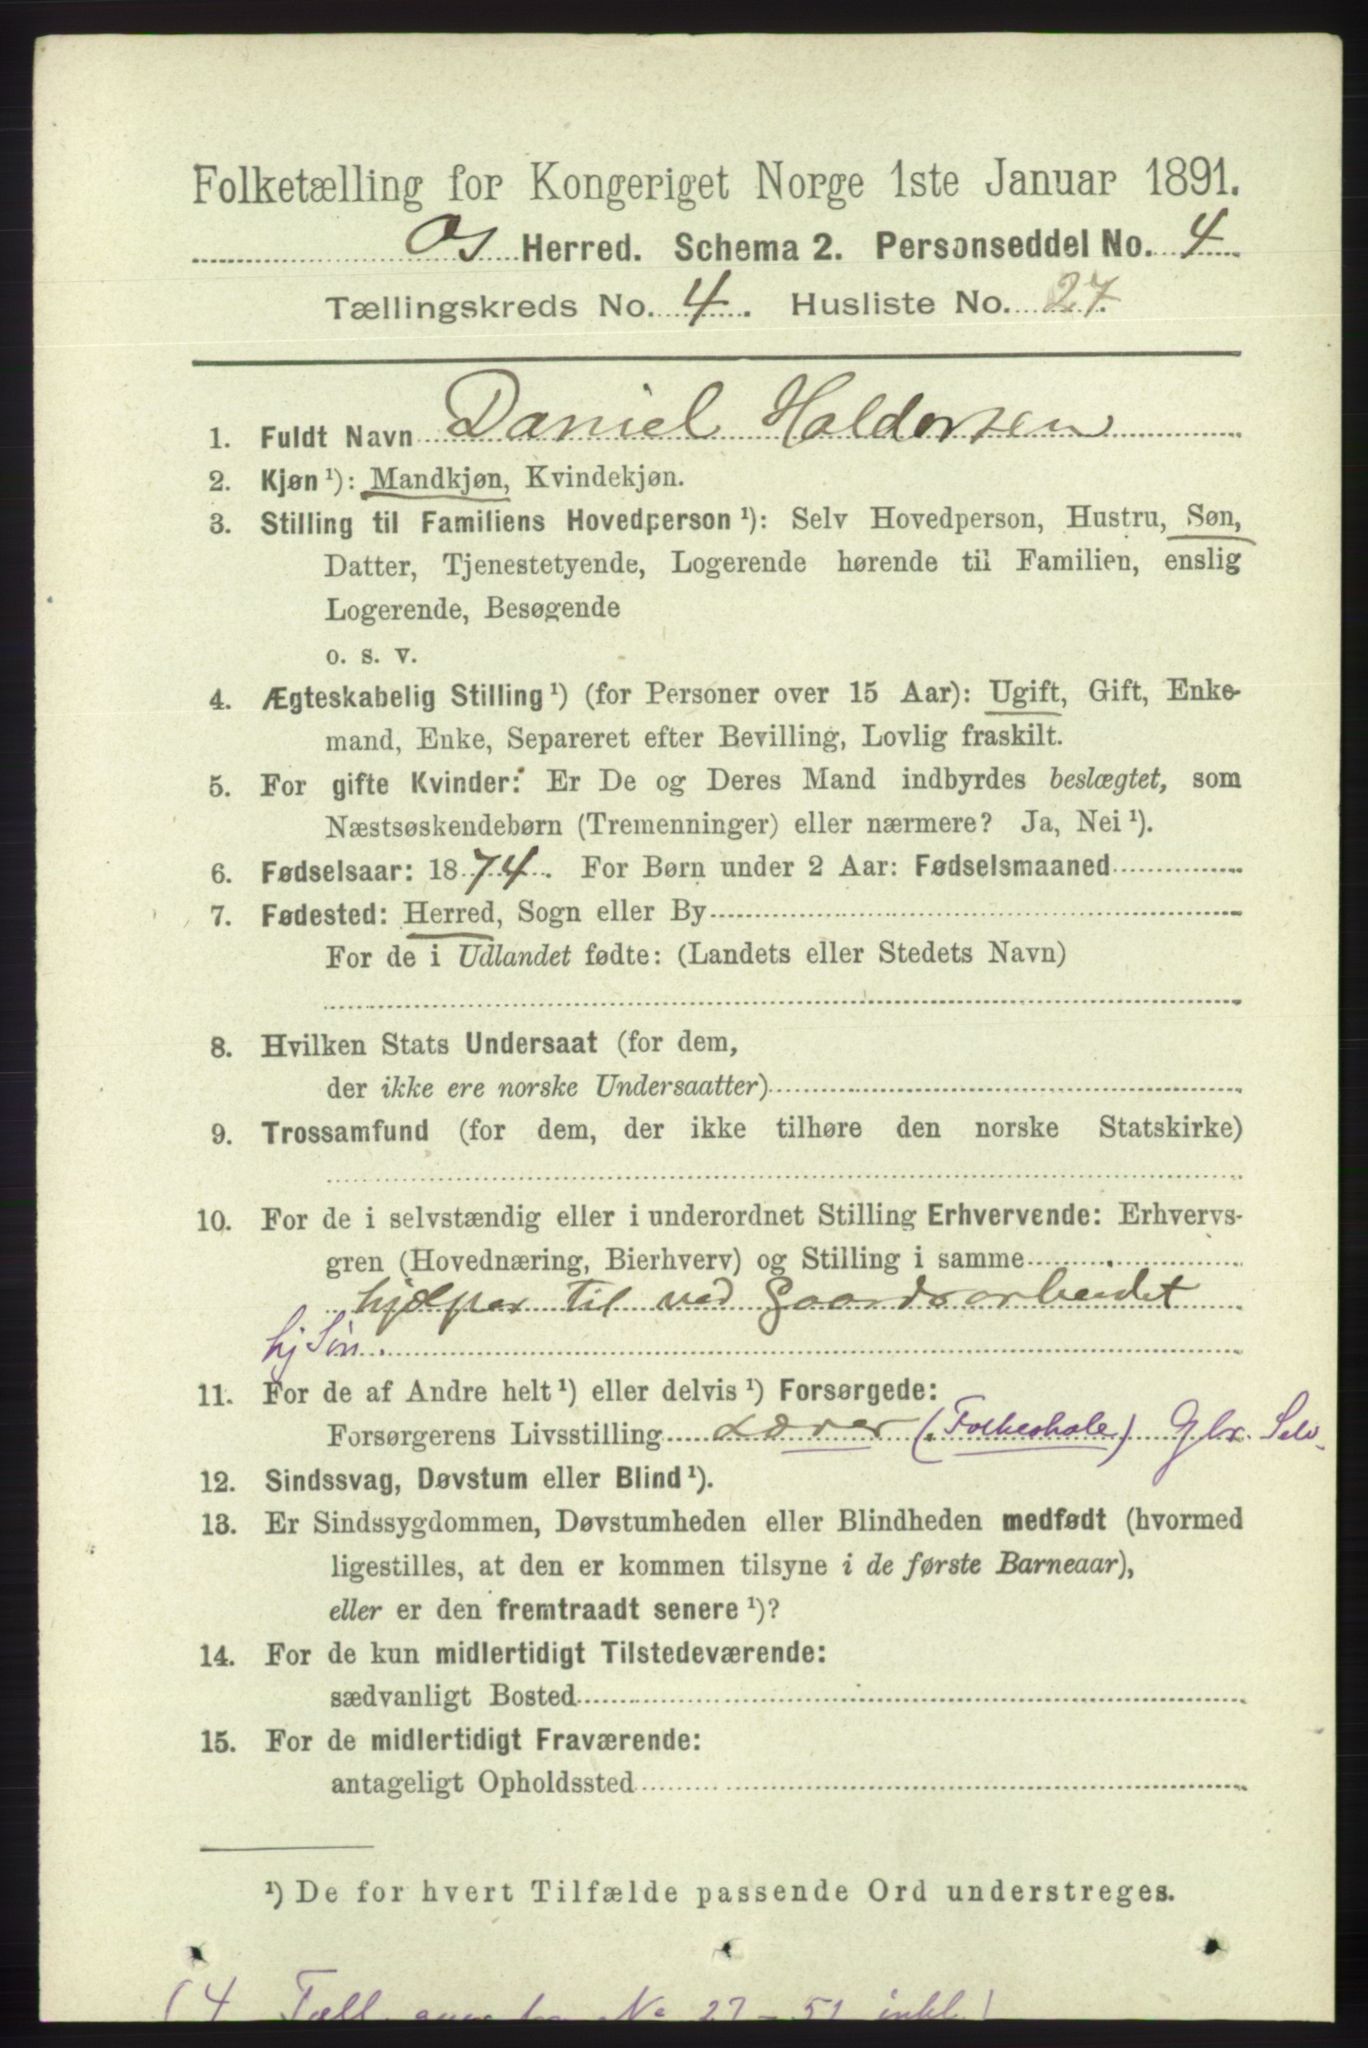 Folketælling for Kongeriget Norge 1ste Januar 1891.
Os Herred. Schema 2. Personseddel No. 4
Tællingskreds No. 4. Husliste No. 27.
1. Fuldt Navn Daniel Haldorsen
2. Kjøn ¹): Mandkjøn, Kvindekjøn.
3. Stilling til Familiens Hovedperson ¹): Selv Hovedperson, Hustru, Søn,
Datter, Tjenestetyende, Logerende hørende til Familien, enslig
Logerende, Besøgende
o. s. v.
4. Ægteskabelig Stilling ¹) (for Personer over 15 Aar): Ugift, Gift, Enke-
mand, Enke, Separeret efter Bevilling, Lovlig fraskilt.
5. For gifte Kvinder: Er De og Deres Mand indbyrdes beslægtet, som
Næstsøskendebørn (Tremenninger) eller nærmere? Ja, Nei ¹).
6. Fødselsaar: 1874. For Børn under 2 Aar: Fødselsmaaned
7. Fødested: Herred, Sogn eller By
For de i Udlandet fødte: (Landets eller Stedets Navn)
8. Hvilken Stats Undersaat (for dem,
der ikke ere norske Undersaatter)
9. Trossamfund (for dem, der ikke tilhøre den norske Statskirke)
10. For de i selvstændig eller i underordnet Stilling Erhvervende: Erhvervs-
gren (Hovednæring, Bierhverv) og Stilling i samme
hjælper til ved Gaardsarbeidet
hj Søn
11. For de af Andre helt ¹) eller delvis ¹) Forsørgede:
Forsørgerens Livsstilling Lærer (Folkeskole) Gbr. Selv
12. Sindssvag, Døvstum eller Blind ¹).
13. Er Sindssygdommen, Døvstumheden eller Blindheden medfødt (hvormed
ligestilles, at den er kommen tilsyne i de første Barneaar),
eller er den fremtraadt senere ¹)?
14. For de kun midlertidigt Tilstedeværende:
sædvanligt Bosted
15. For de midlertidigt Fraværende:
antageligt Opholdssted
¹) De for hvert Tilfælde passende Ord understreges.
(4 Tæll No 27 - 51 inkl)